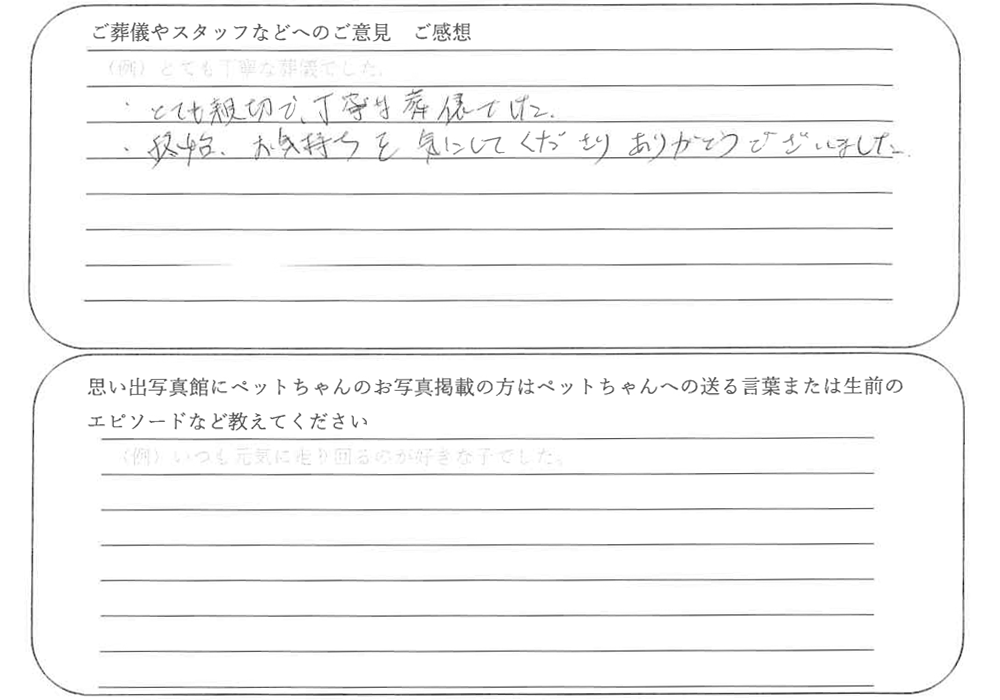 ご葬儀やスタッフなどへのご意見　ご感想
（例）とても丁寧な葬儀でした。
・とても親切で、丁寧な葬儀でした。
・終始、お気持ちを気にしてくださりありがとうございました。
思い出写真館にペットちゃんのお写真掲載の方はペットちゃんへの送る言葉または生前の
エピソードなど教えてください
（例）いつも元気に走り回るのが好きな子でした。